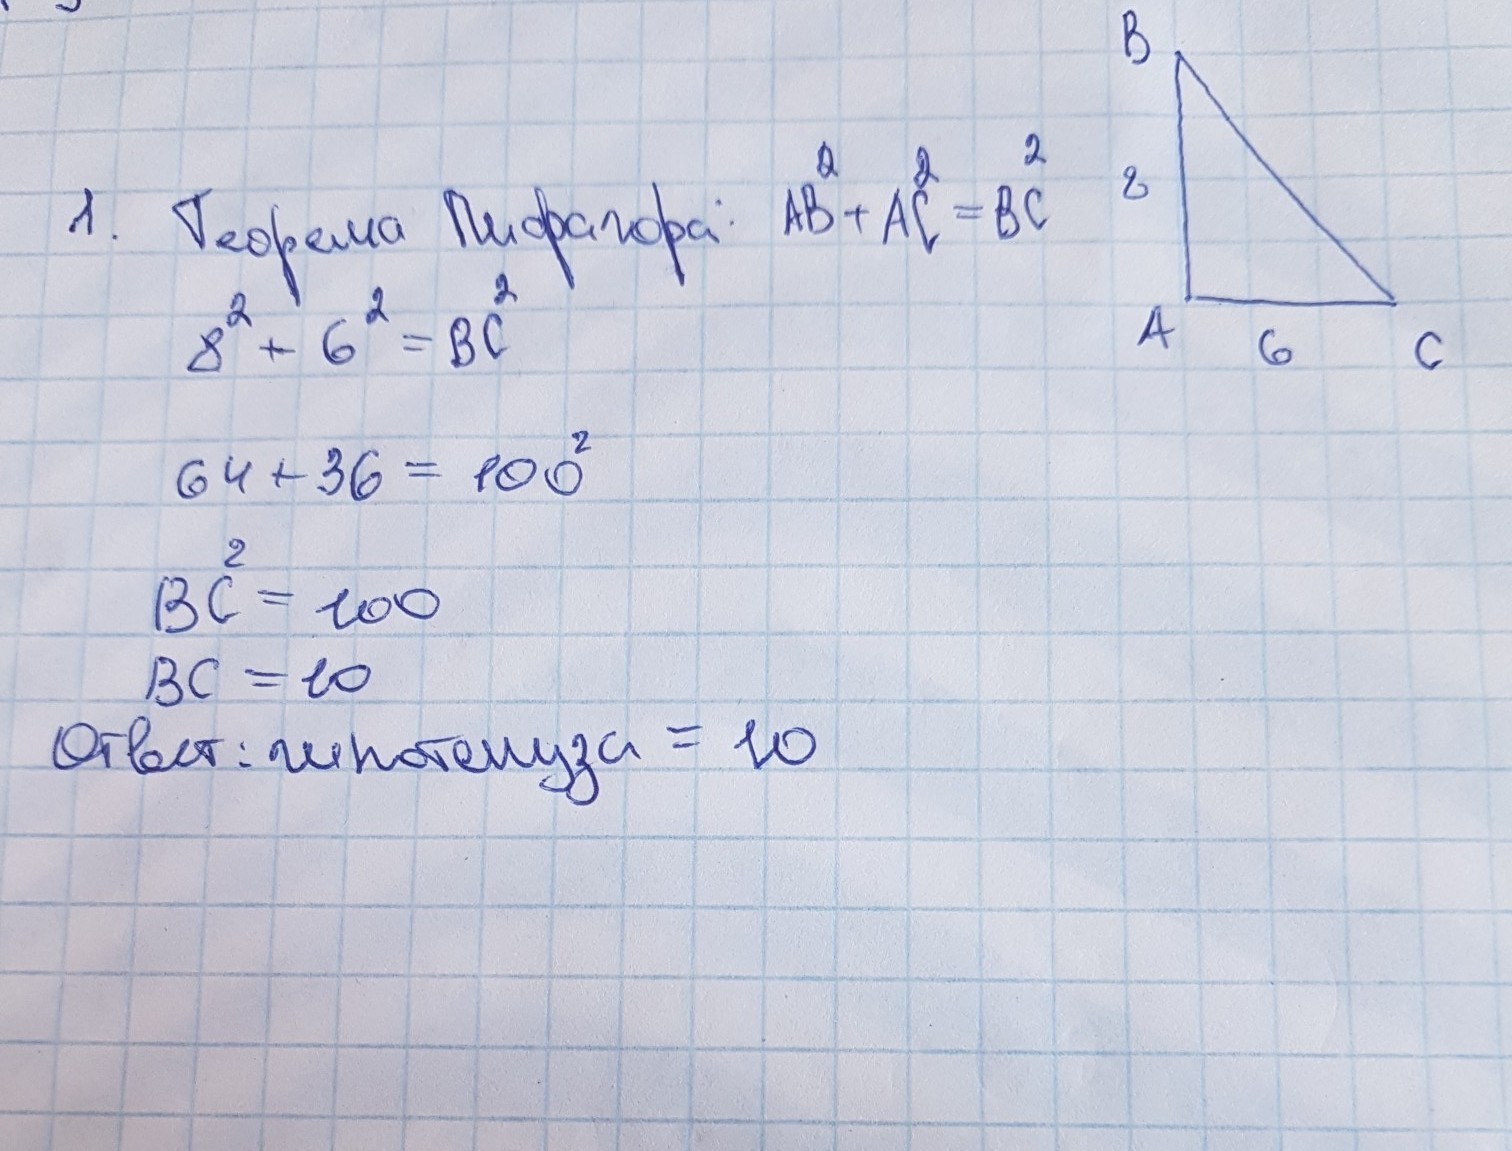 1. Теорема Пифагора: AB² + AC² = BC²
8² + 6² = BC²
64 + 36 = 100²
BC² = 100
BC = 10
Ответ: гипотенуза = 10
B
8
A
6
C